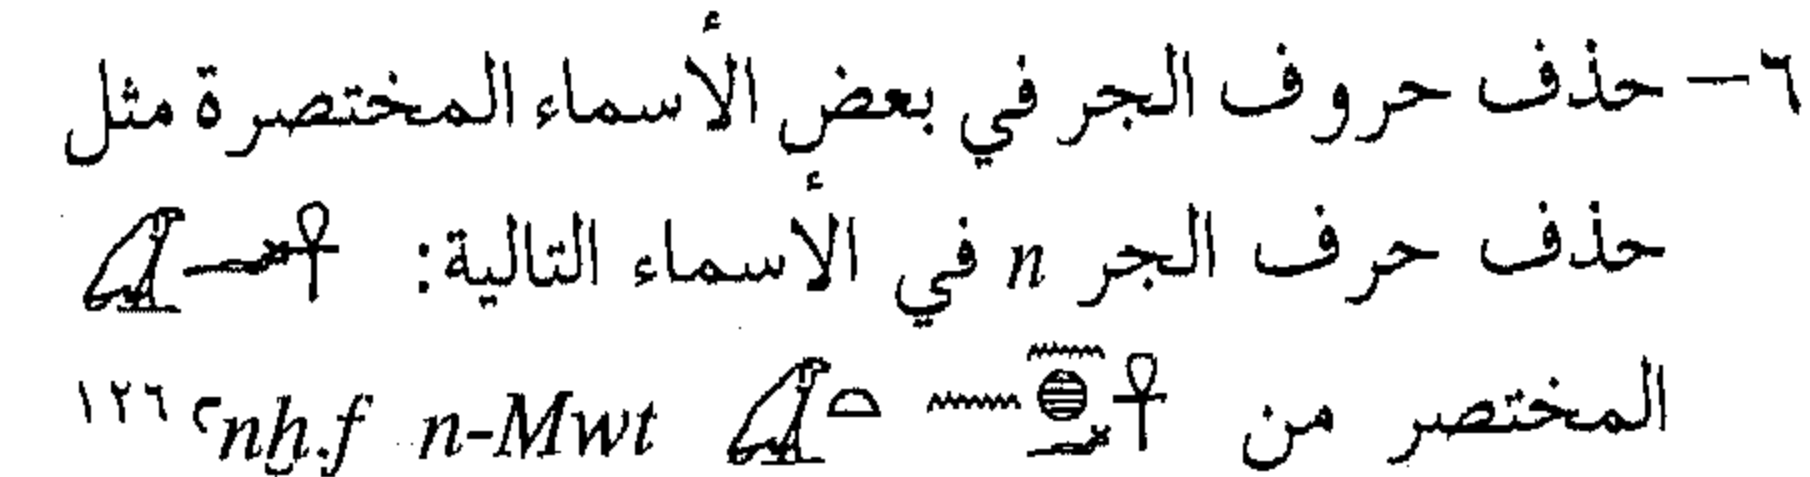 ٦ – حذف حروف الجر في بعض الأسماء المختصرة مثل
حذف حرف الجر n في الأسماء التالية: 𓋹𓆑𓅐
المختصر من 𓋹𓈖𓐍𓆑𓈖 𓏏𓅐 ꜥnḫ.f n-Mwt ١٢٦